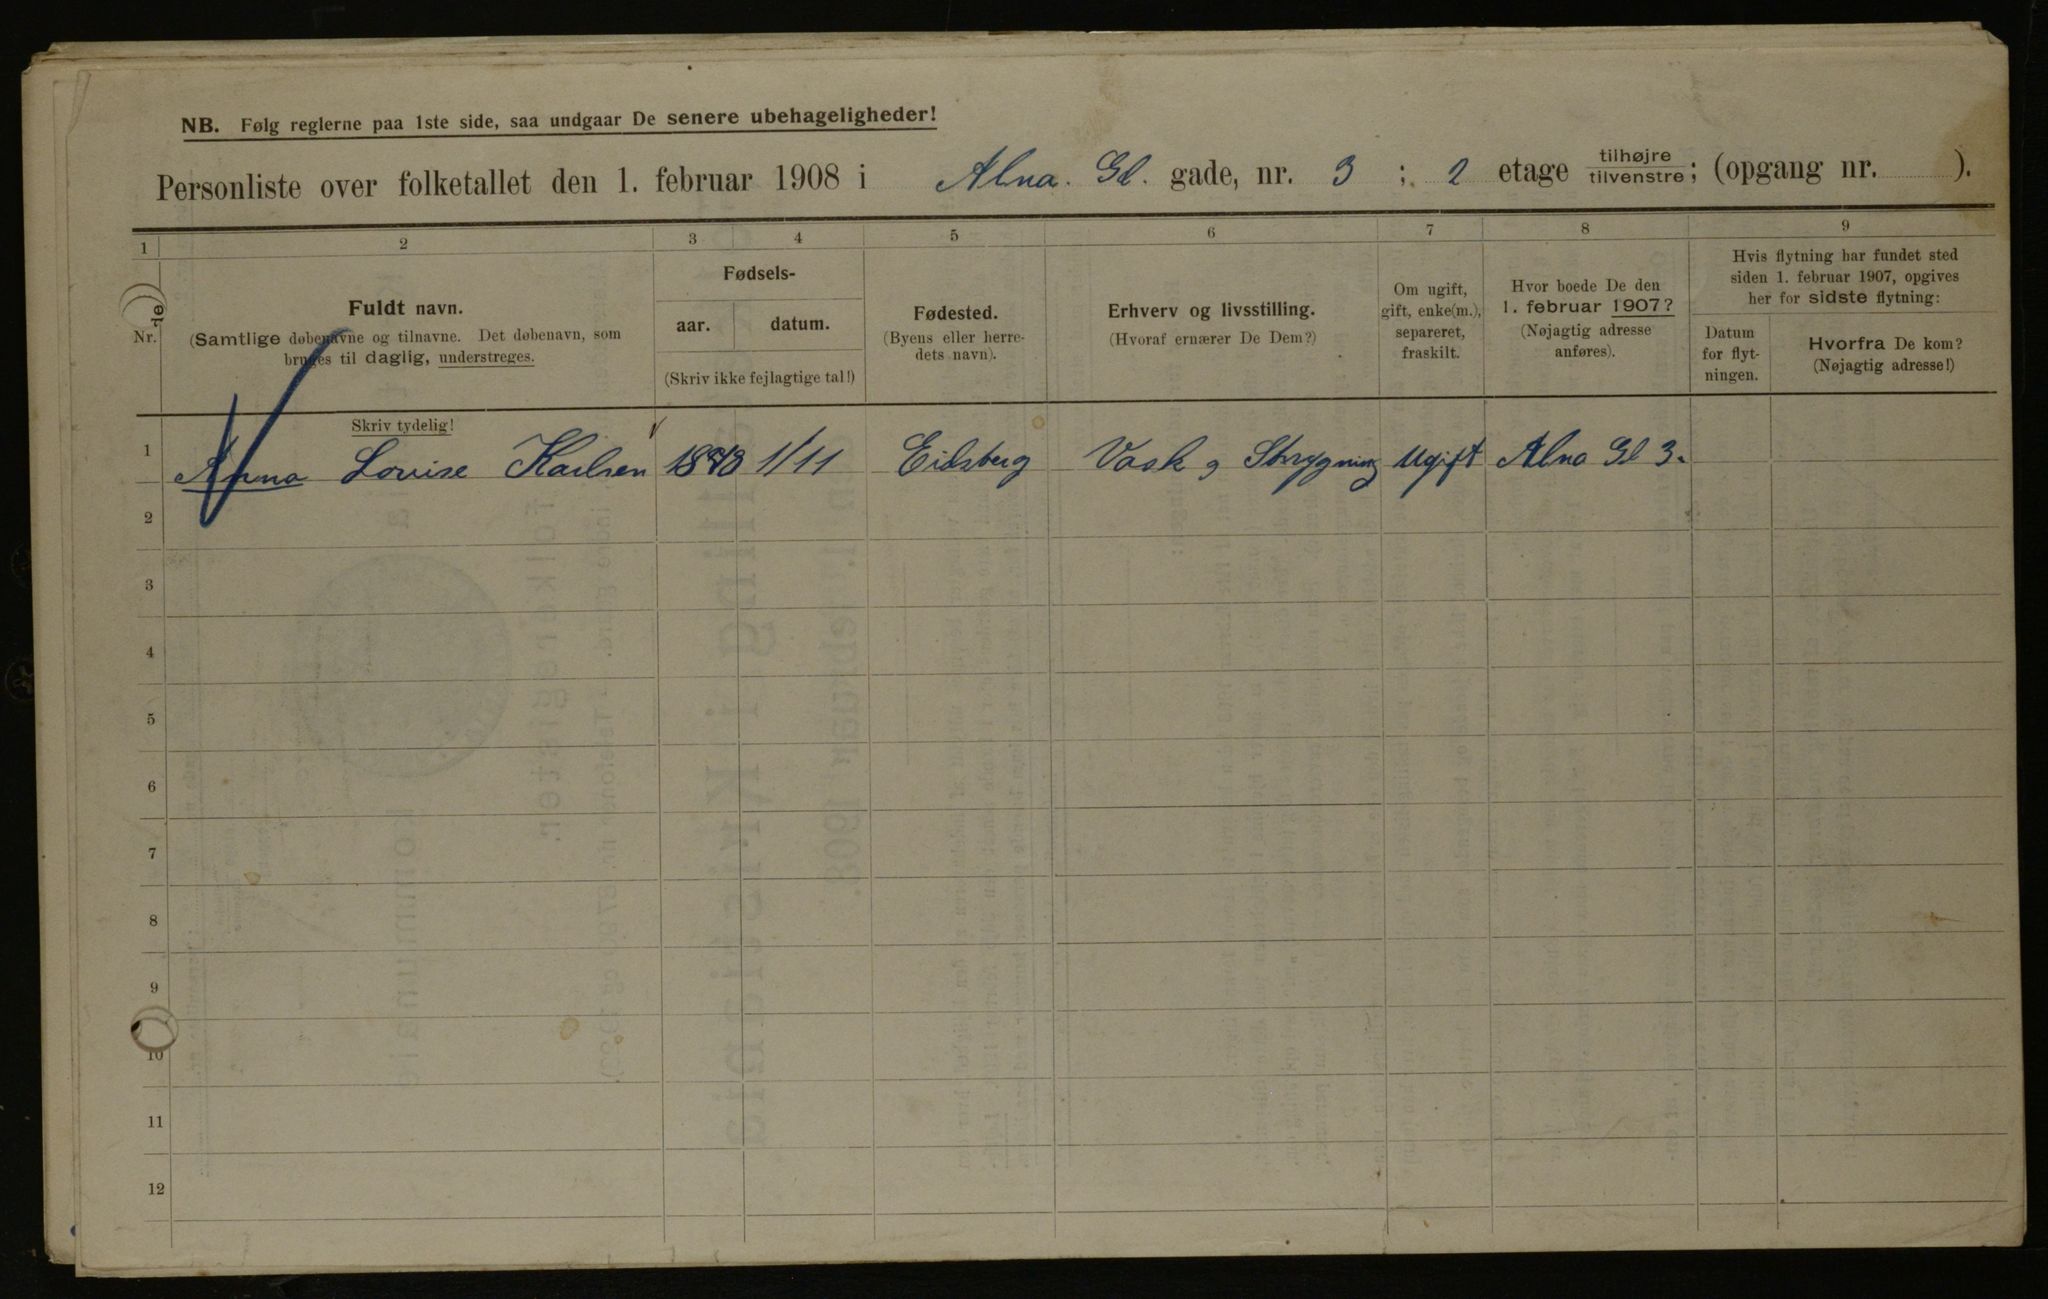 NB. Følg reglerne paa 1ste side, saa undgaar De senere ubehageligheder!
Personliste over folketallet den 1. februar 1908 i Alna. Gd. gade, nr. 3 ; 2 etage tilhøjre tilvenstre; (opgang nr. ).
1 2 3 4 5 6 7 8 9
Nr.
Fuldt navn.
(Samtlige døbenavne og tilnavne. Det døbenavn, som
bruges til daglig, understreges.
Skriv tydelig!
Fødsels-
aar. datum.
(Skriv ikke fejlagtige tal!)
Fødested.
(Byens eller herre-
dets navn).
Erhverv og livsstilling.
(Hvoraf ernærer De Dem?)
Om ugift,
gift, enke(m.),
separeret,
fraskilt.
Hvor boede De den
1. februar 1907?
(Nøjagtig adresse
anføres).
Hvis flytning har fundet sted
siden 1. februar 1907, opgives
her for sidste flytning:
Datum
for flyt-
ningen.
Hvorfra De kom?
(Nøjagtig adresse!)
1 Anna Louise Karlsen 1/11 Eidsberg Vask og Strygning Ugift Alna Gd 3.
2
3
4
5
6
7
8
9
10
11
12